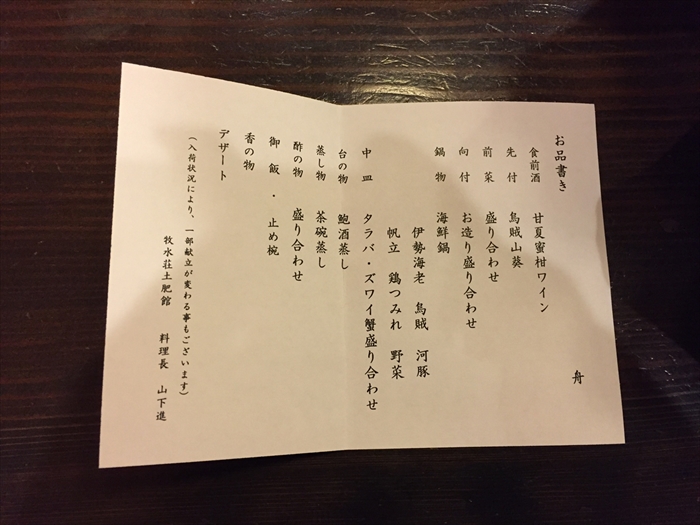 お品書き
舟
食前酒 甘夏蜜柑ワイン
先付 烏賊山葵
前菜 盛り合わせ
向付 お造り盛り合わせ
鍋物 海鮮鍋
伊勢海老 烏賊 河豚
帆立 鶏つみれ 野菜
中皿 タラバ・ズワイ蟹盛り合わせ
台の物 鮑酒蒸し
蒸し物 茶碗蒸し
酢の物 盛り合わせ
御飯・止め椀
香の物
デザート
(入荷状況により、一部献立が変わる事もございます)
牧水荘土肥館 料理長 山下進